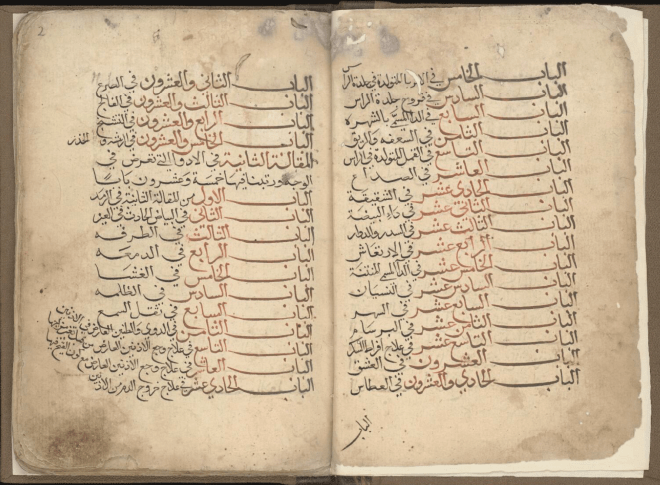 الباب الخامس في الاورام المتولدة في جلدة الراس
الباب السادس في قروح جلدة الراس
الباب السابع في الداء المسمى بالشهره
الباب الثامن في السعفة
الباب التاسع في القمل المتولدة في الراس
الباب العاشر في الصداع
الباب الحادي عشر في الشقيقة
الباب الثاني عشر في داء البيضة
الباب الثالث عشر في السدر والدوار
الباب الرابع عشر في الارتعاش
الباب الخامس عشر في الداء المسمى
الباب السادس عشر في النسيان
الباب السابع عشر في السهر
الباب الثامن عشر في البرسام
الباب التاسع عشر في علاج افراط السكر
الباب العشرون في العشق
الباب الحادي والعشرون في العطاس
الباب
2
الباب الثاني والعشرون في الصرع
الباب الثالث والعشرون في الفالج
الباب الرابع والعشرون في التشنج
الباب الخامس والعشرون في الرعشة والخدر
المقالة الثانية في الادواء التي تعرض في
الوجه وترتيباتها خمسة وعشرون بابا
الباب الاول من المقالة الثانية في الرمد
الباب الثاني في البياض الحادث في العين
الباب الثالث في الطرفه
الباب الرابع في الدمعه
الباب الخامس في العشا
الباب السادس في الظلمه
الباب السابع في ثقل السمع
الباب الثامن في الدوي والطنين العارض في الاذنين
الباب التاسع في علاج وجع الاذنين العارض
الباب العاشر في علاج وجع الاذنين العارض
الباب الحادي عشر في علاج خروج الدم من الاذنين